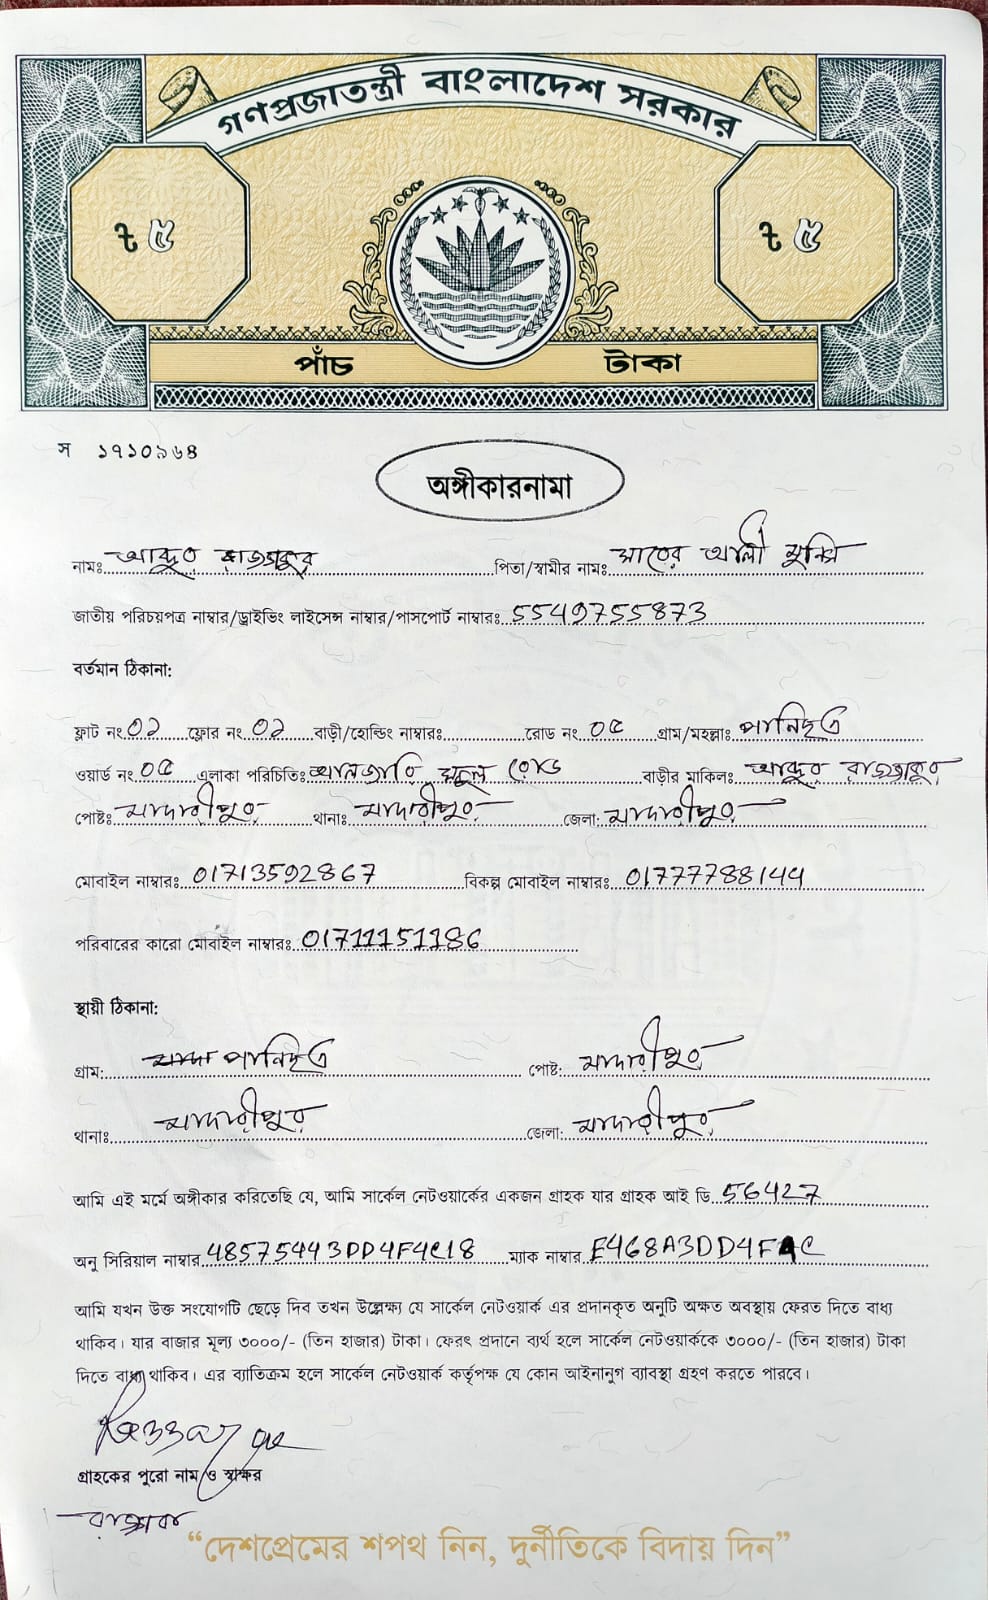 গণপ্রজাতন্ত্রী বাংলাদেশ সরকার
৳ ৫ ৳ ৫
পাঁচ টাকা
স ১৭১০৯৬৪
অঙ্গীকারনামা
নামঃ আব্দুর রাজ্জাকুর পিতা/স্বামীর নামঃ আলী মুন্সি
জাতীয় পরিচয়পত্র নাম্বার/ড্রাইভিং লাইসেন্স নাম্বার/পাসপোর্ট নাম্বারঃ 5549755873
বর্তমান ঠিকানা:
ফ্লাট নং 02 ফ্লোর নং 02 বাড়ী/হোল্ডিং নাম্বারঃ রোড নং ০৫ গ্রাম/মহল্লাঃ পানিছত্র
ওয়ার্ড নং ০৫ এলাকা পরিচিতিঃ স্কুল রোড বাড়ীর মাকিলঃ আব্দুর রাজ্জাকুর
পোষ্টঃ মাদারীপুর থানাঃ মাদারীপুর জেলা: মাদারীপুর
মোবাইল নাম্বারঃ 01713592867 বিকল্প মোবাইল নাম্বারঃ 01777788144
পরিবারের কারো মোবাইল নাম্বারঃ 01711151186
স্থায়ী ঠিকানা:
গ্রাম: পানিছত্র পোষ্ট: মাদারীপুর
থানাঃ মাদারীপুর জেলা: মাদারীপুর
আমি এই মর্মে অঙ্গীকার করিতেছি যে, আমি সার্কেল নেটওয়ার্কের একজন গ্রাহক যার গ্রাহক আই ডি 56427
অনু সিরিয়াল নাম্বার 48575443DD4F4C18 ম্যাক নাম্বার E468A3DD4F4C
আমি যখন উক্ত সংযোগটি ছেড়ে দিব তখন উল্লেক্ষ্য যে সার্কেল নেটওয়ার্ক এর প্রদানকৃত অনুটি অক্ষত অবস্থায় ফেরত দিতে বাধ্য
থাকিব। যার বাজার মূল্য ৩০০০/- (তিন হাজার) টাকা। ফেরৎ প্রদানে ব্যর্থ হলে সার্কেল নেটওয়ার্ককে ৩০০০/- (তিন হাজার) টাকা
দিতে বাধ্য থাকিব। এর ব্যাতিক্রম হলে সার্কেল নেটওয়ার্ক কর্তৃপক্ষ যে কোন আইনানুগ ব্যাবস্থা গ্রহণ করতে পারবে।
গ্রাহকের পুরো নাম ও স্বাক্ষর
“দেশপ্রেমের শপথ নিন, দুর্নীতিকে বিদায় দিন”